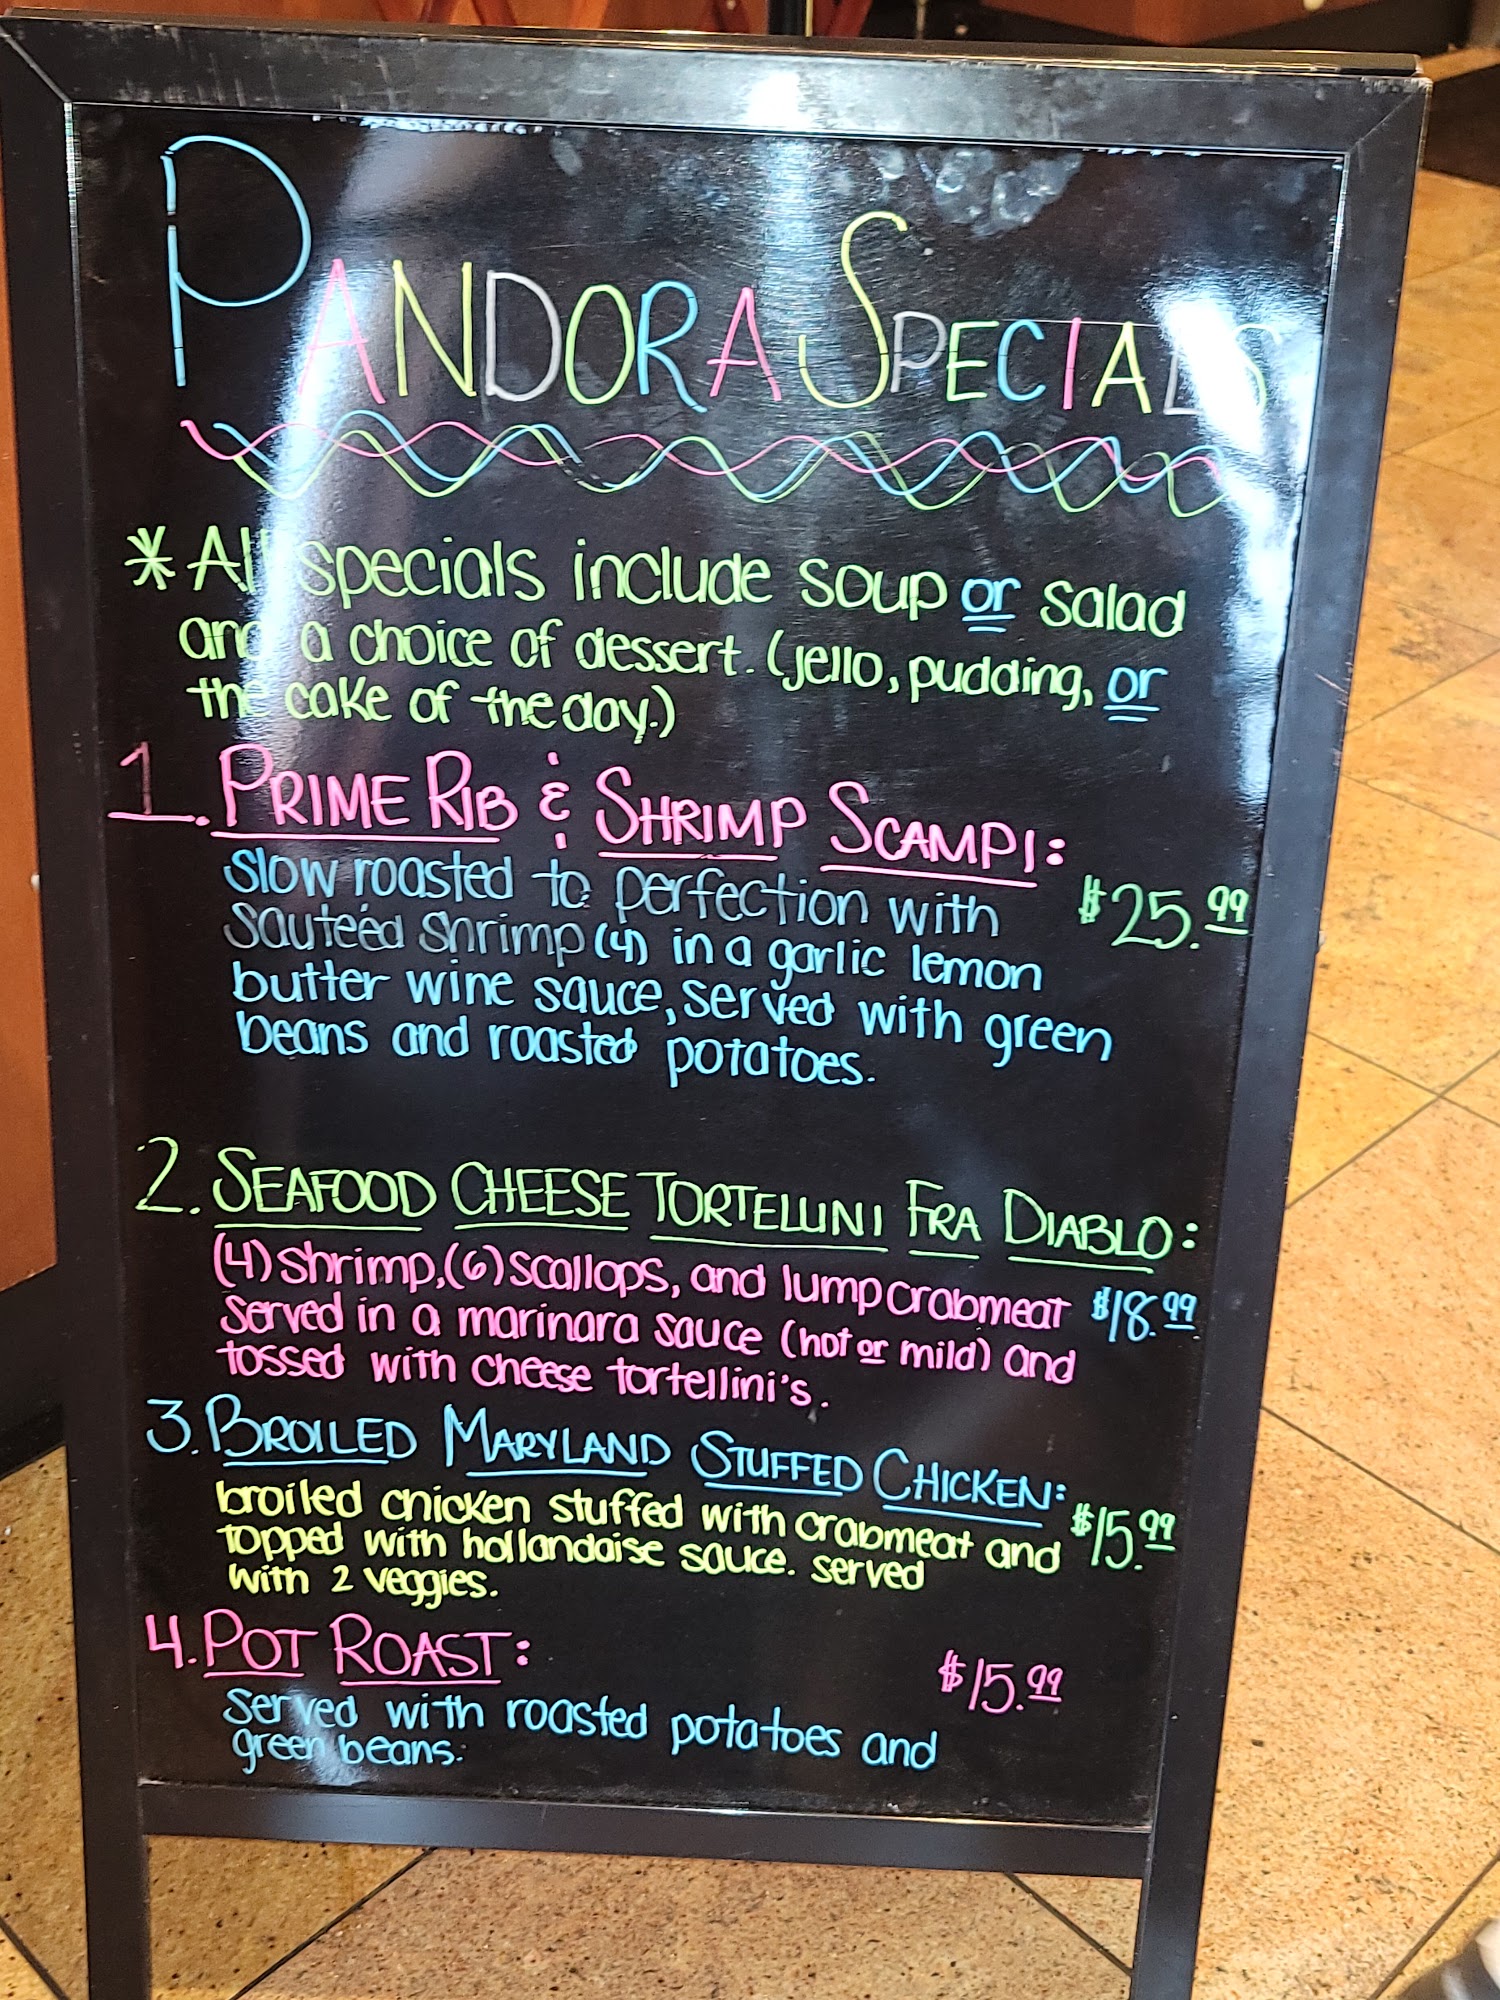 PANDORA SPECIALS
* All specials include soup or salad
and a choice of dessert. (jello, pudding, or
the cake of the day.)
1. PRIME RIB & SHRIMP SCAMPI:
slow roasted to perfection with $25.99
sauteéd shrimp (4) in a garlic lemon
butter wine sauce, served with green
beans and roasted potatoes.
2. SEAFOOD CHEESE TORTELLINI FRA DIABLO:
(4) shrimp, (6) scallops, and lump crabmeat $18.99
served in a marinara sauce (hot or mild) and
tossed with cheese tortellini's.
3. BROILED MARYLAND STUFFED CHICKEN:
broiled chicken stuffed with crabmeat and $15.99
topped with hollandaise sauce. served
with 2 veggies.
4. POT ROAST: $15.99
served with roasted potatoes and
green beans.